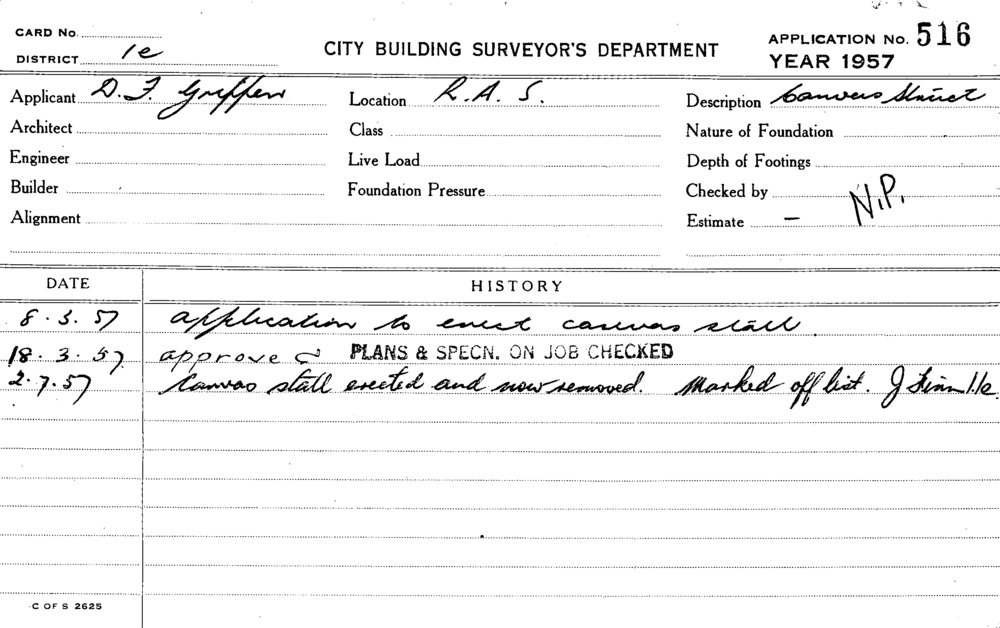 CARD No.
DISTRICT 1e
CITY BUILDING SURVEYOR'S DEPARTMENT
APPLICATION No. 516
YEAR 1957
Applicant D. F. Griffen
Architect
Engineer
Builder
Alignment
Location R. A. S.
Class
Live Load
Foundation Pressure
Description Canvas Struct
Nature of Foundation
Depth of Footings
Checked by N.P.
Estimate –
DATE HISTORY
8.3.57 application to erect canvas stall.
18.3.57 approved PLANS & SPECN. ON JOB CHECKED
2.7.57 Canvas stall erected and now removed. Marked off list. J
C OF S 2625